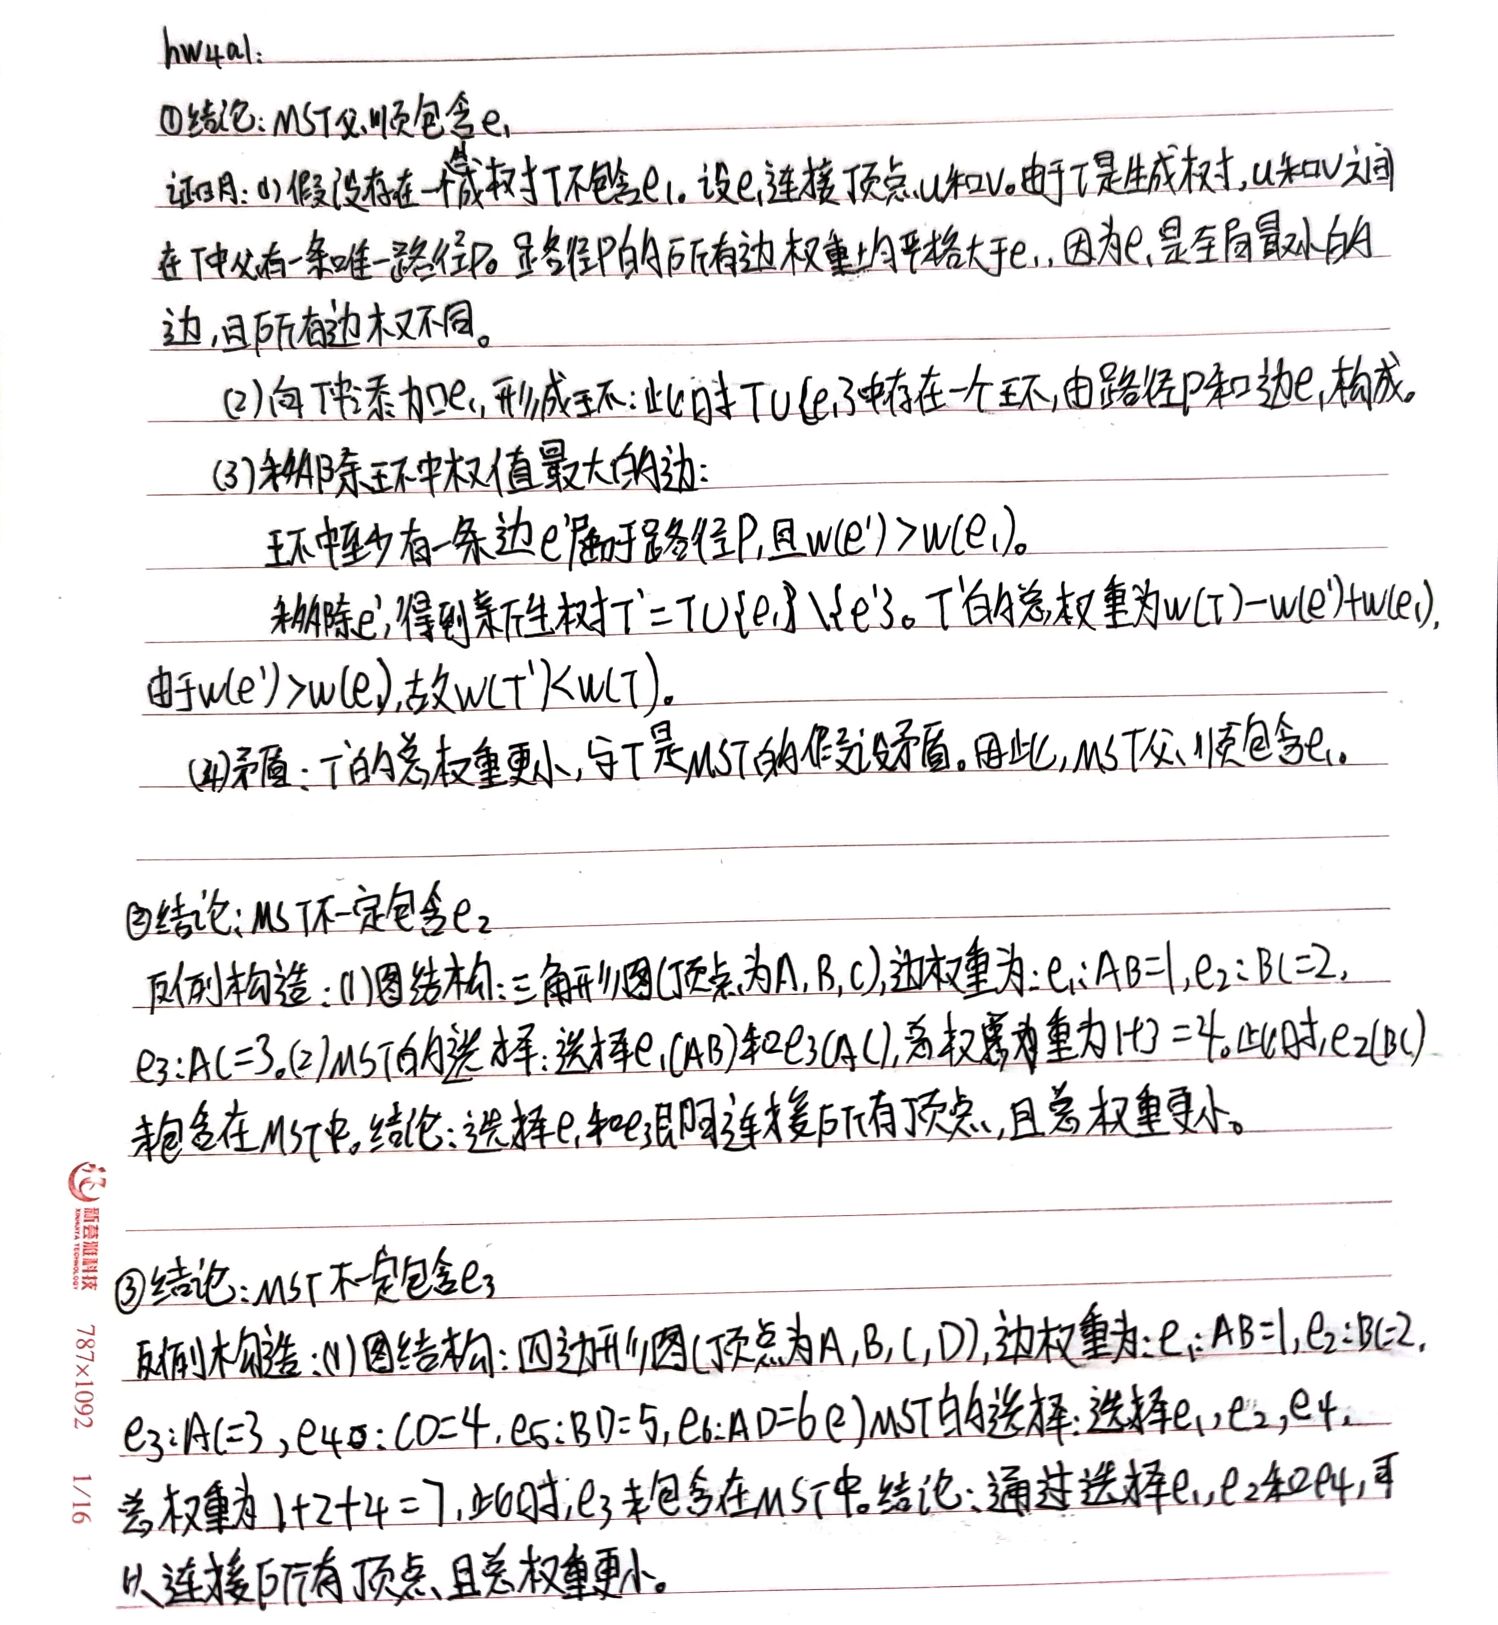 hw4a1:
①结论：MST必须包含e₁
证明：(1)假设存在一个生成树T不包含e₁。设e₁连接顶点u和v。由于T是生成树，u和v之间
在T中必有一条唯一路径P。路径P的所有边权重均严格大于e₁，因为e₁是全局最小的
边，且所有边权不同。
(2)向T中添加e₁，形成环：此时T∪{e₁}中存在一个环，由路径P和边e₁构成。
(3)移除环中权值最大的边：
环中至少有一条边e'属于路径P，且w(e')>w(e₁)。
移除e'，得到新生树T'=T∪{e₁}\{e'}。T'的总权重为w(T)-w(e')+w(e₁)，
由于w(e')>w(e₁)，故w(T')<w(T)。
(4)矛盾：T'的总权重更小，与T是MST的假设矛盾。因此，MST必须包含e₁。
②结论：MST不一定包含e₂
反例构造：(1)图结构：三角形图(顶点为A,B,C)，边权重为：e₁:AB=1,e₂:BC=2,
e₃:AC=3。(2)MST的选择：选择e₁(AB)和e₃(AC)，总权重为1+3=4。此时，e₂(BC)
未包含在MST中。结论：选择e₁和e₃即可连接所有顶点，且总权重更小。
③结论：MST不一定包含e₃
反例构造：(1)图结构：四边形图(顶点为A,B,C,D)，边权重为：e₁:AB=1,e₂:BC=2,
e₃:AC=3,e₄:CD=4,e₅:BD=5,e₆:AD=6(2)MST的选择：选择e₁,e₂,e₄,
总权重为1+2+4=7，此时，e₃未包含在MST中。结论：通过选择e₁,e₂和e₄，可
以连接所有顶点、且总权重更小。
新荟雅科技
787×1092
1/16